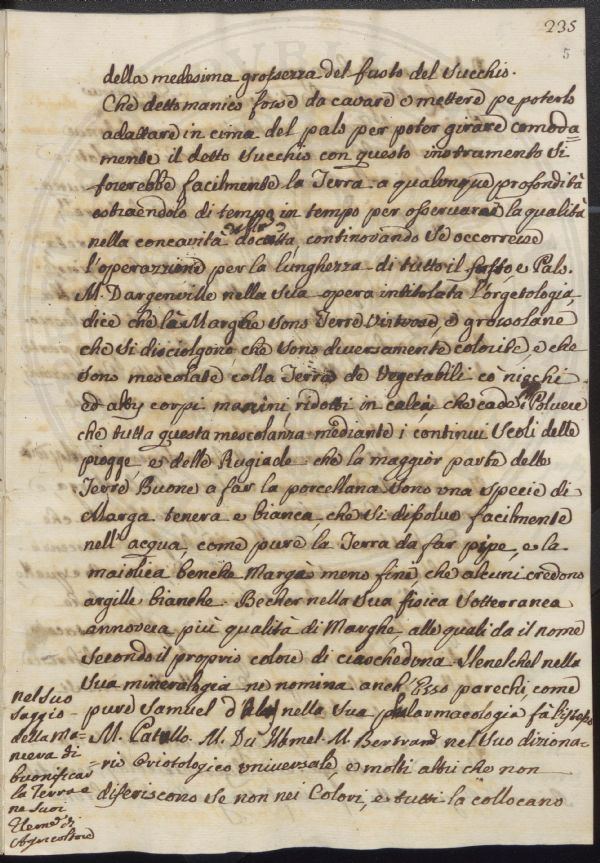 235
5
della medesima grossezza del fusto del Succhio.
Che detto manico fosse da cavare e mettere pe poterlo
adattare in cima del palo per poter girare comoda=
mente il detto Succhio con questo instramento Si
forerebbe facilmente la Terra a qualunque profondità
estraendolo di tempo in tempo per osservare la qualità
nella concavità continovando Se occorresse
l'operazione per la lunghezza di tutto il fusto, e Palo.
M. Dargenville nella Sua opera intitolata l'orgetologia,
dice che la Marghe sono Terre virtuose, e grossolane
che Si disciolgono, che sono diversamente colorite, e che
sono mescolate colla Terra de Vegetabili co' nicchi
ed altri corpi marini, ridotti in calce che cade Polvere
che tutta questa mescolanza mediante i continui Scoli delle
piogge e delle Rugiade che la maggior parte delle
Terre Buone a far la porcellana sono una specie di
Marga tenera e bianca, che Si dissolve facilmente
nell'acqua, come pure la Terra da far pipe, e la
maiolica benche Marga meno fine, che alcuni credono
argille bianche. Becher nella Sua fisica Sotterranea
annovera più qualità di Marghe, alle quali da il nome
Secondo il proprio colore di ciascheduna. Henelchel nella
Sua mineralogia ne nomina anch'Esso parechi, come
pure Samuel nella Sua fà l'istesso
M. Catullo. M. Du Hamel. M. Bertrand nel Suo diziona=
rio Oristologico universale, e molti altri che non
diferiscono Se non nei Colori, e tutti la collocano
nel suo
Saggio
della Ma=
niera di
buonificar
la Terra e
ne Suoi
Elemti di
Agricoltura